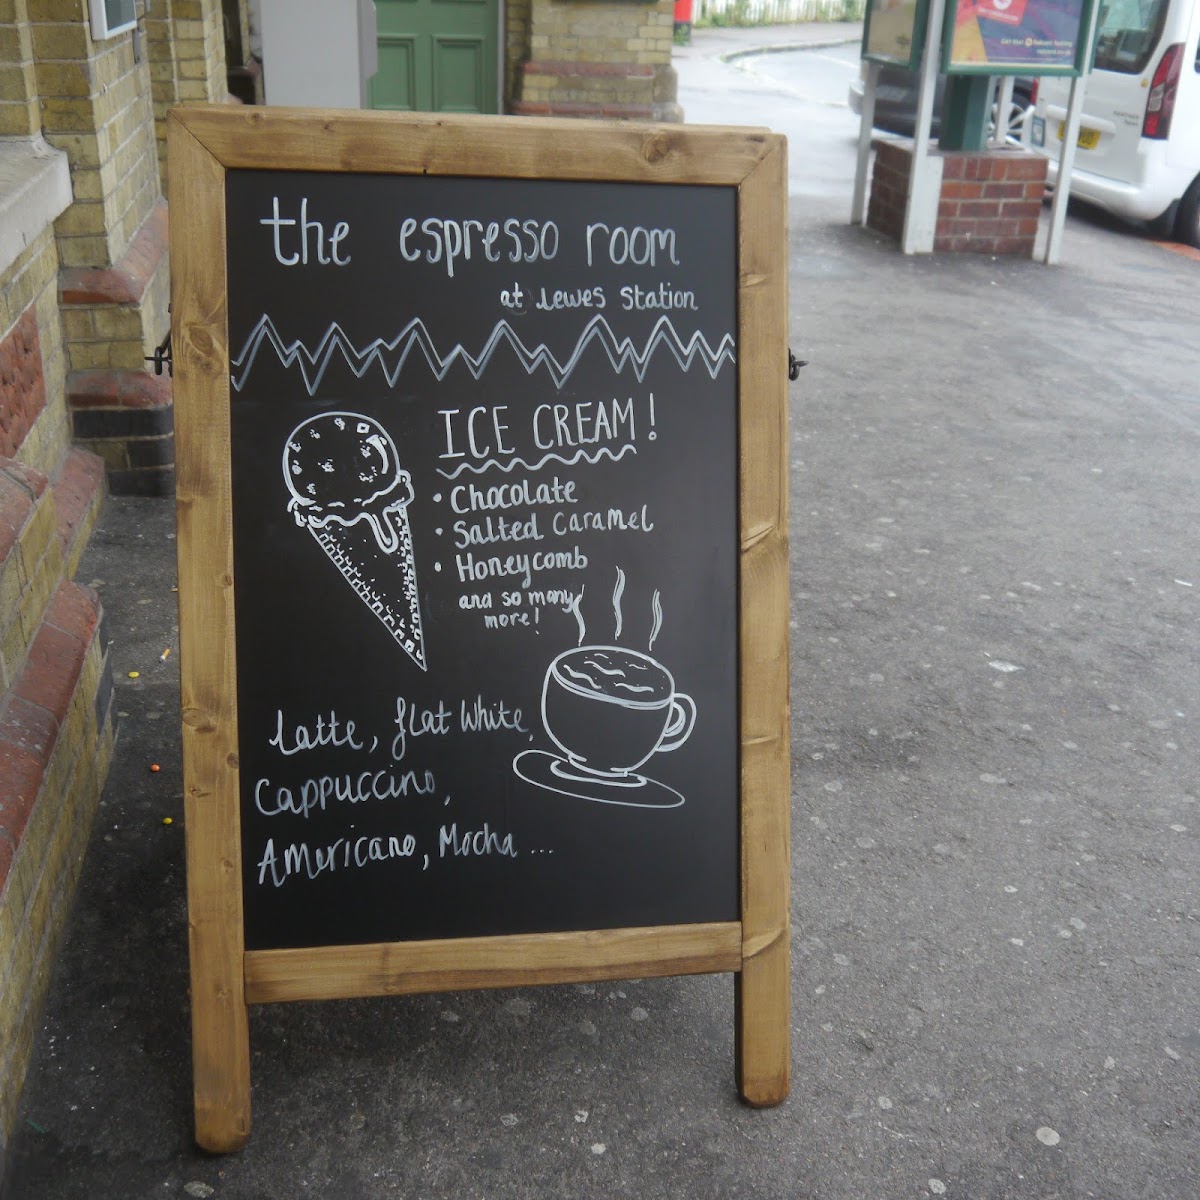 the espresso room
at Lewes Station
ICE CREAM!
• Chocolate
• Salted Caramel
• Honeycomb
and so many
more!
Latte, flat White,
Cappuccino,
Americano, Mocha ...